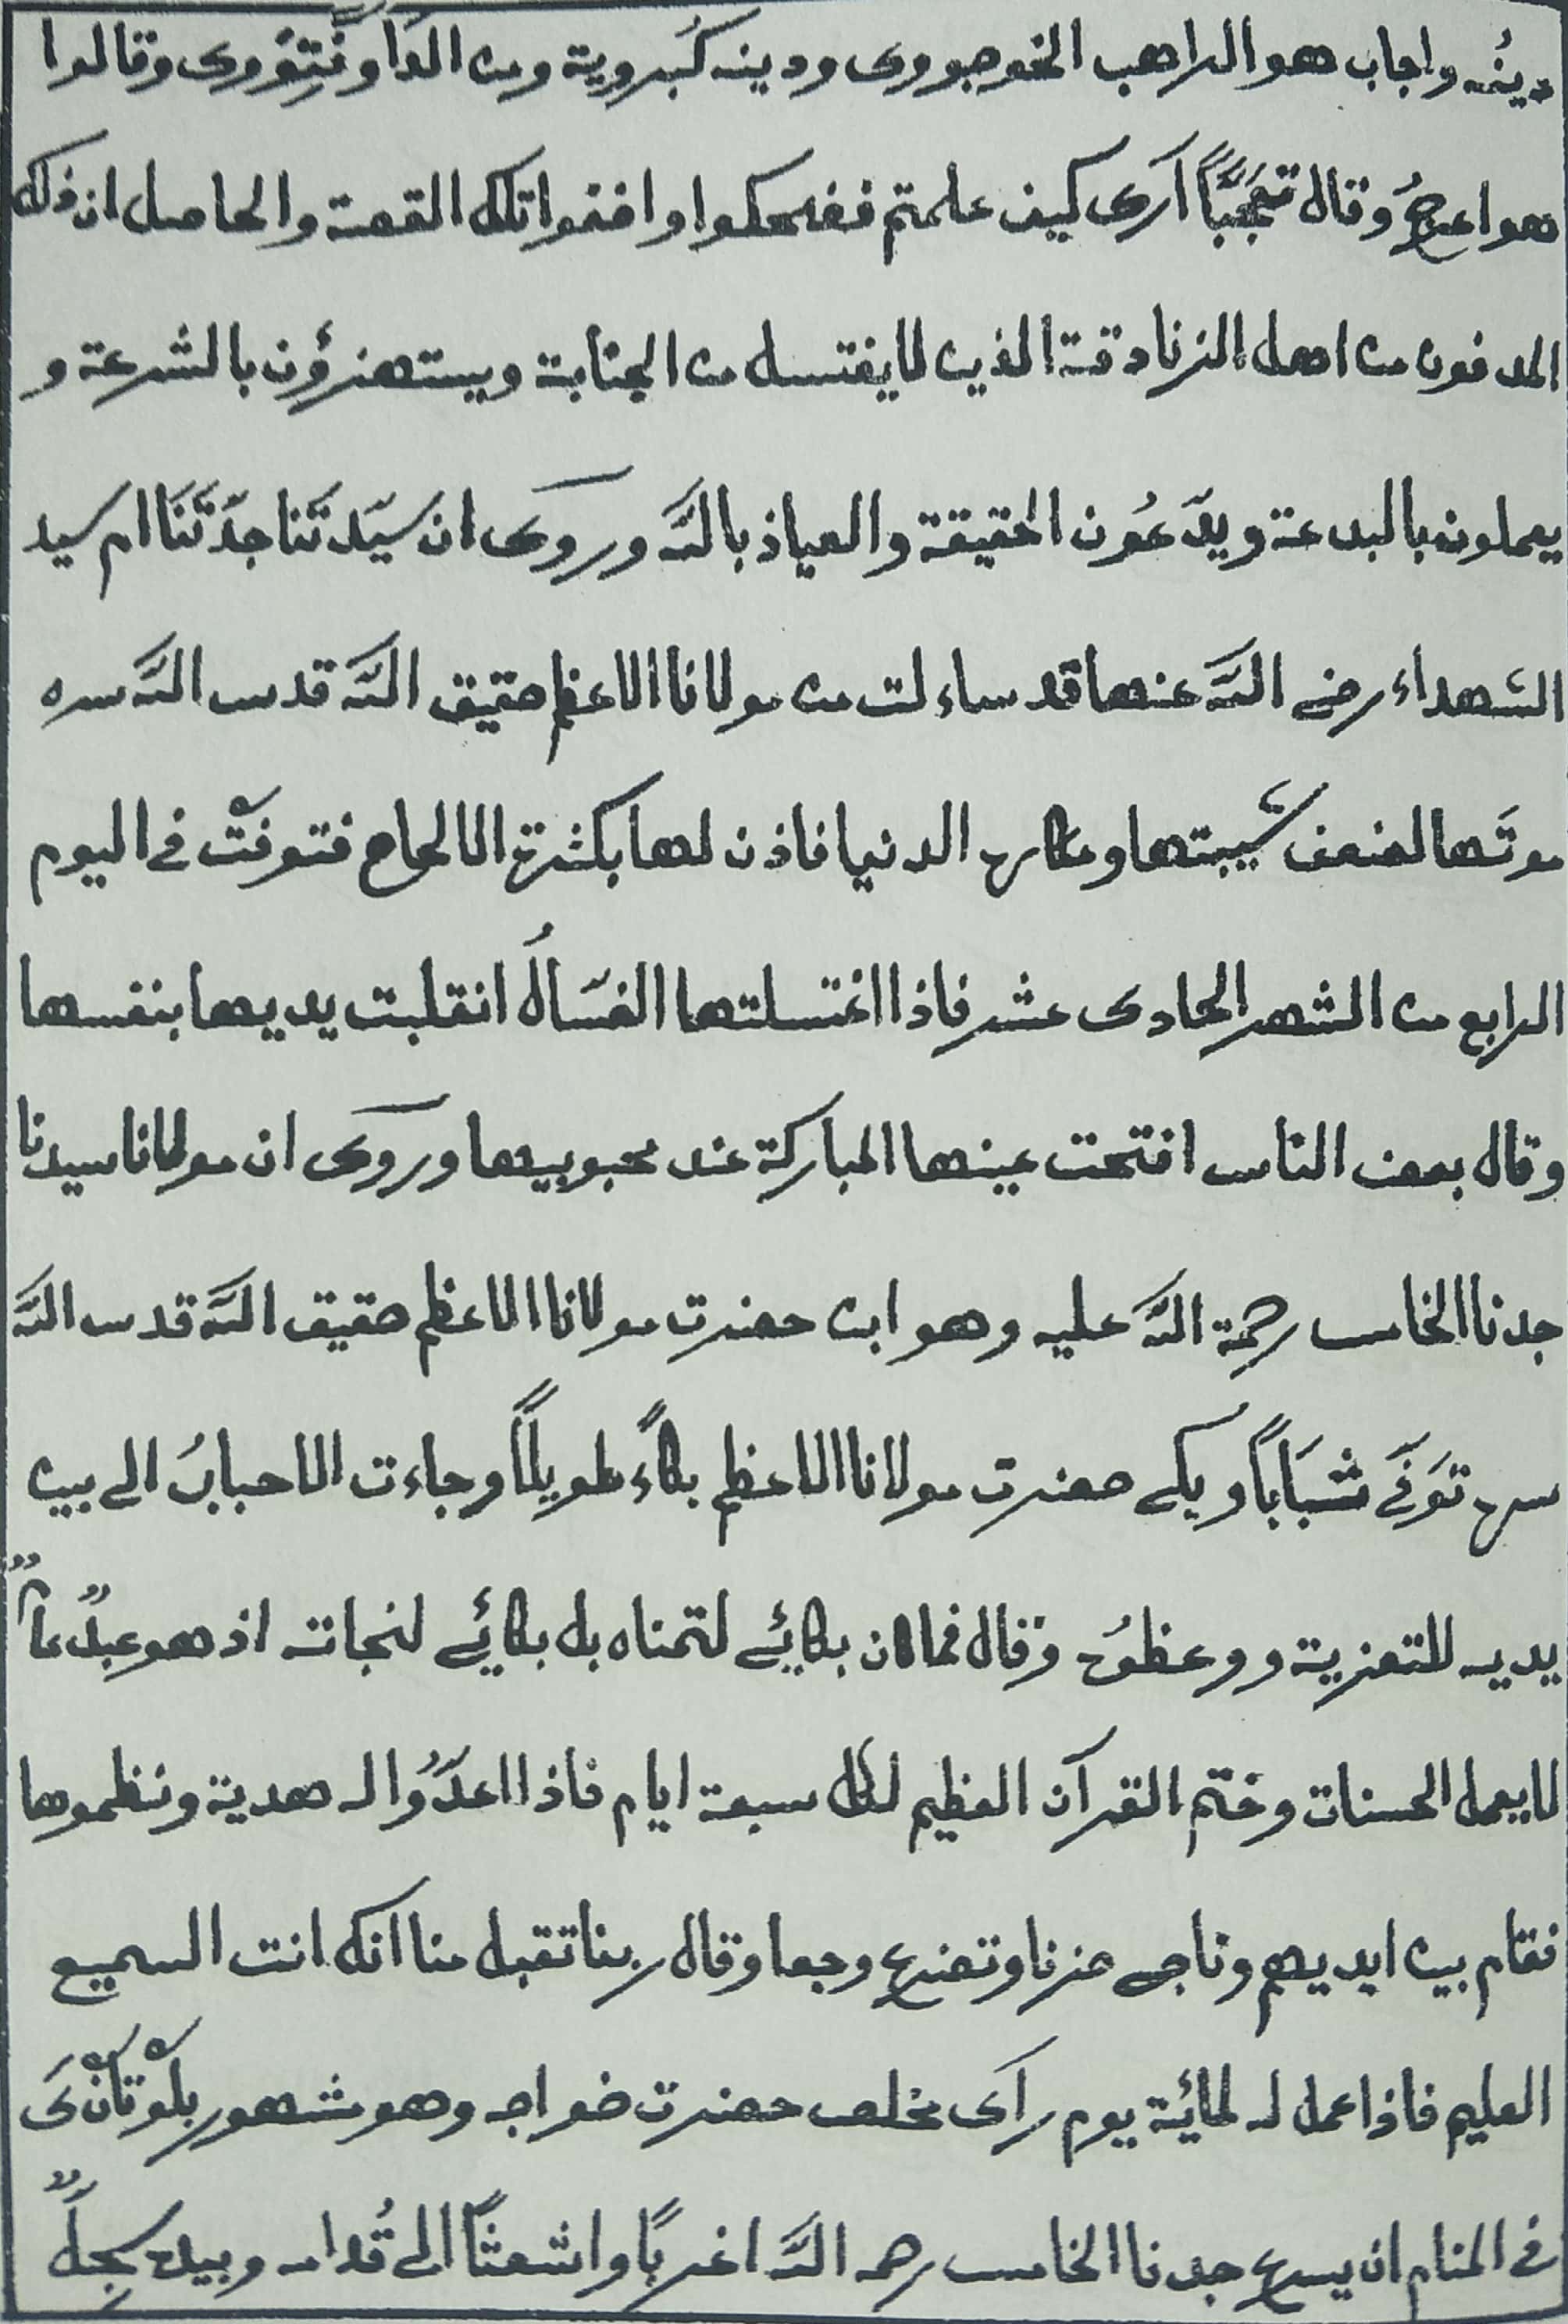 دينُه واجاب هو الراهب الخوجووى ودينه كُبروية ومن الدَاوتِوُوى وقالوا
هو اعرجُ وقال تعَجُّبًا آرى كيف علمتم ففحكوا واختموا تلك القصة والحاصل ان ذلك
المدفون من اهل الزنادقة الذين لا يغتسل من الجنابة ويستهزؤن بالشرعة و
يعملون بالبدعة ويدّعُون الحقيقة والعياذ باللّه وروى ان سيّدتَنا جدّتَنَا ام سيد
الشهداء رضى اللّه عنها قد ساءلت من مولانا الاعظم حقيق اللّه قدس اللّه سره
موتَها لضعف شيبتها ومكاره الدنيا فاذن لها بكثرة الالحاح فتوفتْ فى اليوم
الرابع من الشهر الحادى عشر فاذا اغتسلتها الغسّالُ انقلبت يديها بنفسها
وقال بعض الناس افتحت عينها المباركة عند محبوبيها وروى ان مولانا سيدنا
جدنا الخامس رحمة اللّه عليه وهو ابن حضرت مولانا الاعظم حقيق اللّه قدس اللّه
سره توَفّى شَبَاباً وبكى حضرت مولانا الاعظم بكاءً طويلاً وجاءت الاحبابُ الى بين
يديه للتعزية ووعظوُه وقال فما كان بكائي لتمناه بل بكائي لنجاته اذ هو عبدٌ عامٌ
لا يعمل الحسنات وختم القرآن العظيم لكل سبعة ايام فاذا اعدَّوُا له هدية ونظموها
فقام بين ايديهم وناجى حزنا وتضرع وجعا وقال ربنا تقبل منا انك انت السميع
العليم فاذا عمل له لمائية يوم رآى مخلص حضرت خواجه وهو مشهور بلْوتانْى
فى المنام ان يسرع جدنا الخامس رحمه اللّه اغربًا واشعثاً الى قُدامه وبيده سجلٌ